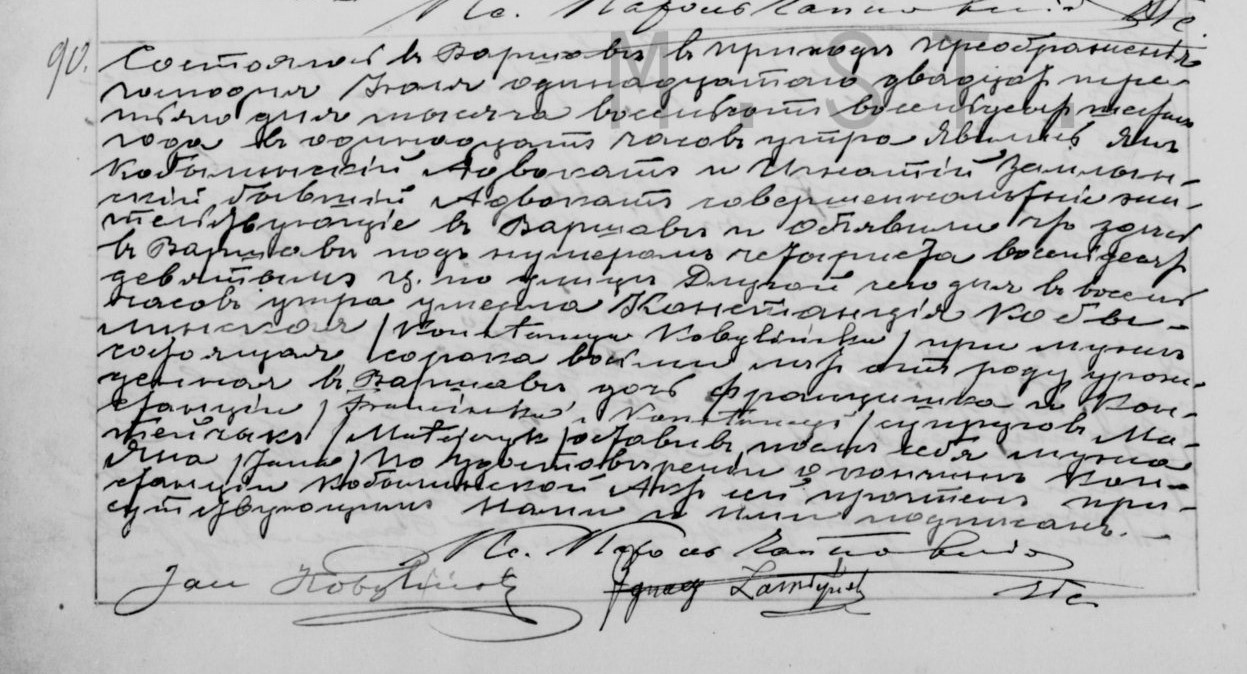 Кс. Кароль
90.
Состоялось в Варшаве в приходе преображения
господня Июля одинадцатаго двадцать тре-
тьяго дня тысяча восемьсот восемьдесят
года в одинадцать часов утра Явились Ян
Кобылинский Адвокат и Игнатий Замлын-
ский бывший Адвокат совершеннолетние жи-
тельствующие в Варшаве и Объявили что здесь
в Варшаве под нумером четыреста восемьдесят
девятым ц. по улице Длугой сегодня в восемь
часов утра умерла Констанция Кобы-
линская /Konstancya Kobylińska/ при муже
состоящая /сорока восьми лет от роду урож-
денная в Варшаве дочь Францишка и Кон-
станции /Franciszka i Konstancyi/ супругов Ма-
тейчык /Matejczyk/ оставив после себя мужа
Яна /Jana/ По удостоверении о кончине Кон-
станции Кобылинской Акт сей прочтен при-
сутствующим Нами и ими подписан.
Кс. Кароль
Jan Kobyliński Ignacy
M. S T.